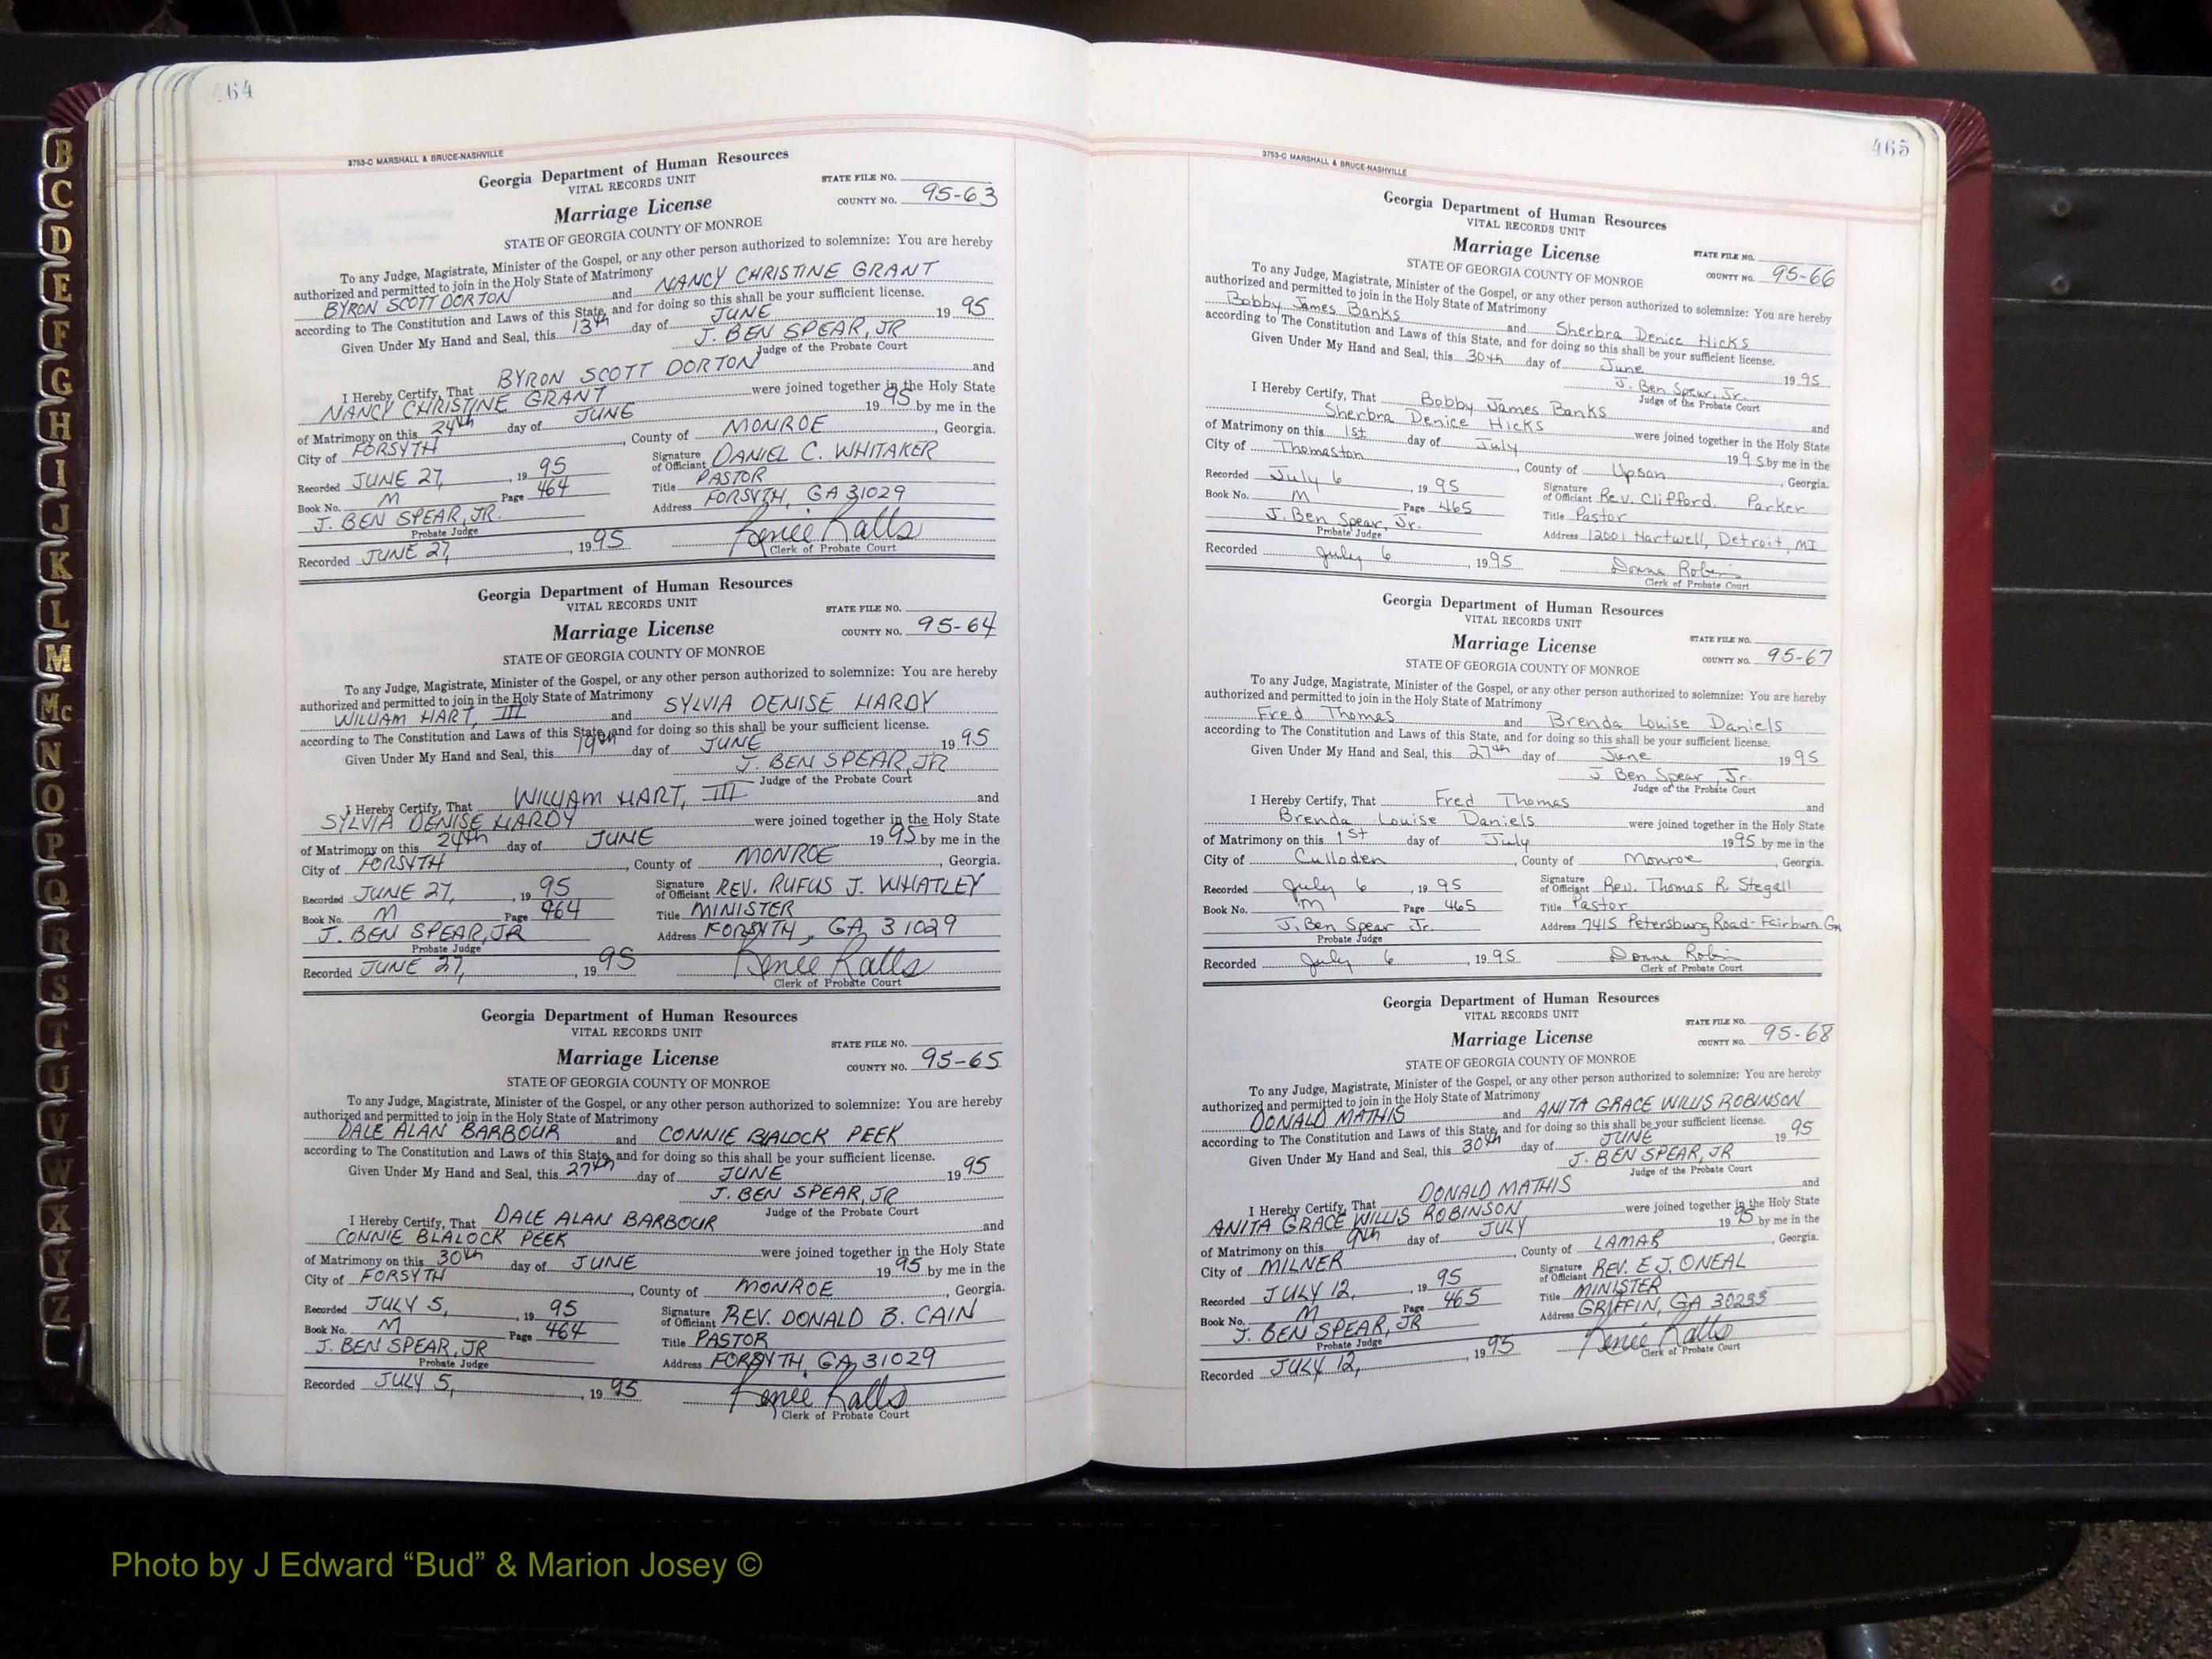 464
3753-C MARSHALL & BRUCE-NASHVILLE
Georgia Department of Human Resources
VITAL RECORDS UNIT
STATE FILE NO.
Marriage License
COUNTY NO. 95-63
STATE OF GEORGIA COUNTY OF MONROE
To any Judge, Magistrate, Minister of the Gospel, or any other person authorized to solemnize: You are hereby
authorized and permitted to join in the Holy State of Matrimony
BYRON SCOTT DORTON and NANCY CHRISTINE GRANT
according to The Constitution and Laws of this State, and for doing so this shall be your sufficient license.
Given Under My Hand and Seal, this 13th day of JUNE 1995
J. BEN SPEAR, JR
Judge of the Probate Court
I Hereby Certify, That BYRON SCOTT DORTON and
NANCY CHRISTINE GRANT were joined together in the Holy State
of Matrimony on this 24th day of JUNE 1995 by me in the
City of FORSYTH, County of MONROE, Georgia.
Recorded JUNE 27, 1995
Signature of Officiant DANIEL C. WHITAKER
Book No. M Page 464
Title PASTOR
J. BEN SPEAR, JR.
Probate Judge
Address FORSYTH, GA 31029
Recorded JUNE 27, 1995
Renee Ralls
Clerk of Probate Court
Georgia Department of Human Resources
VITAL RECORDS UNIT
STATE FILE NO.
Marriage License
COUNTY NO. 95-64
STATE OF GEORGIA COUNTY OF MONROE
To any Judge, Magistrate, Minister of the Gospel, or any other person authorized to solemnize: You are hereby
authorized and permitted to join in the Holy State of Matrimony
WILLIAM HART, III and SYLVIA DENISE HARDY
according to The Constitution and Laws of this State, and for doing so this shall be your sufficient license.
Given Under My Hand and Seal, this 19th day of JUNE 1995
J. BEN SPEAR, JR
Judge of the Probate Court
I Hereby Certify, That WILLIAM HART, III and
SYLVIA DENISE HARDY were joined together in the Holy State
of Matrimony on this 24th day of JUNE 1995 by me in the
City of FORSYTH, County of MONROE, Georgia.
Recorded JUNE 27, 1995
Signature of Officiant REV. RUFUS J. WHATLEY
Book No. M Page 464
Title MINISTER
J. BEN SPEAR, JR
Probate Judge
Address FORSYTH, GA 31029
Recorded JUNE 27, 1995
Renee Ralls
Clerk of Probate Court
Georgia Department of Human Resources
VITAL RECORDS UNIT
STATE FILE NO.
Marriage License
COUNTY NO. 95-65
STATE OF GEORGIA COUNTY OF MONROE
To any Judge, Magistrate, Minister of the Gospel, or any other person authorized to solemnize: You are hereby
authorized and permitted to join in the Holy State of Matrimony
DALE ALAN BARBOUR and CONNIE BLALOCK PEEK
according to The Constitution and Laws of this State, and for doing so this shall be your sufficient license.
Given Under My Hand and Seal, this 27th day of JUNE 1995
J. BEN SPEAR, JR
Judge of the Probate Court
I Hereby Certify, That DALE ALAN BARBOUR and
CONNIE BLALOCK PEEK were joined together in the Holy State
of Matrimony on this 30th day of JUNE 1995 by me in the
City of FORSYTH, County of MONROE, Georgia.
Recorded JULY 5, 1995
Signature of Officiant REV. DONALD B. CAIN
Book No. M Page 464
Title PASTOR
J. BEN SPEAR, JR
Probate Judge
Address FORSYTH, GA 31029
Recorded JULY 5, 1995
Renee Ralls
Clerk of Probate Court
465
3753-C MARSHALL & BRUCE-NASHVILLE
Georgia Department of Human Resources
VITAL RECORDS UNIT
STATE FILE NO.
Marriage License
COUNTY NO. 95-66
STATE OF GEORGIA COUNTY OF MONROE
To any Judge, Magistrate, Minister of the Gospel, or any other person authorized to solemnize: You are hereby
authorized and permitted to join in the Holy State of Matrimony
Bobby James Banks and Sherbra Denice Hicks
according to The Constitution and Laws of this State, and for doing so this shall be your sufficient license.
Given Under My Hand and Seal, this 30th day of June 1995
J. Ben Spear, Jr.
Judge of the Probate Court
I Hereby Certify, That Bobby James Banks and
Sherbra Denice Hicks were joined together in the Holy State
of Matrimony on this 1st day of July 1995 by me in the
City of Thomaston, County of Upson, Georgia.
Recorded July 6, 1995
Signature of Officiant Rev. Clifford. Parker
Book No. M Page 465
Title Pastor
J. Ben Spear, Jr.
Probate Judge
Address 12001 Hartwell, Detroit, MI
Recorded July 6, 1995
Donna Robin
Clerk of Probate Court
Georgia Department of Human Resources
VITAL RECORDS UNIT
STATE FILE NO.
Marriage License
COUNTY NO. 95-67
STATE OF GEORGIA COUNTY OF MONROE
To any Judge, Magistrate, Minister of the Gospel, or any other person authorized to solemnize: You are hereby
authorized and permitted to join in the Holy State of Matrimony
Fred Thomas and Brenda Louise Daniels
according to The Constitution and Laws of this State, and for doing so this shall be your sufficient license.
Given Under My Hand and Seal, this 27th day of June 1995
J Ben Spear, Jr.
Judge of the Probate Court
I Hereby Certify, That Fred Thomas and
Brenda Louise Daniels were joined together in the Holy State
of Matrimony on this 1st day of July 1995 by me in the
City of Culloden, County of Monroe, Georgia.
Recorded July 6, 1995
Signature of Officiant Rev. Thomas R. Stegall
Book No. M Page 465
Title Pastor
J. Ben Spear Jr.
Probate Judge
Address 7415 Petersburg Road-Fairburn Ga
Recorded July 6, 1995
Donna Robin
Clerk of Probate Court
Georgia Department of Human Resources
VITAL RECORDS UNIT
STATE FILE NO.
Marriage License
COUNTY NO. 95-68
STATE OF GEORGIA COUNTY OF MONROE
To any Judge, Magistrate, Minister of the Gospel, or any other person authorized to solemnize: You are hereby
authorized and permitted to join in the Holy State of Matrimony
DONALD MATHIS and ANITA GRACE WILLIS ROBINSON
according to The Constitution and Laws of this State, and for doing so this shall be your sufficient license.
Given Under My Hand and Seal, this 30th day of JUNE 1995
J. BEN SPEAR, JR
Judge of the Probate Court
I Hereby Certify, That DONALD MATHIS and
ANITA GRACE WILLIS ROBINSON were joined together in the Holy State
of Matrimony on this 9th day of JULY 1995 by me in the
City of MILNER, County of LAMAR, Georgia.
Recorded JULY 12, 1995
Signature of Officiant REV. E J. ONEAL
Book No. M Page 465
Title MINISTER
J. BEN SPEAR, JR
Probate Judge
Address GRIFFIN, GA 30233
Recorded JULY 12, 1995
Renee Ralls
Clerk of Probate Court
B
C
D
E
F
G
H
I
J
K
L
M
Mc
N
O
P
Q
R
S
T
U
V
W
X
Y
Z
Photo by J Edward “Bud” & Marion Josey ©